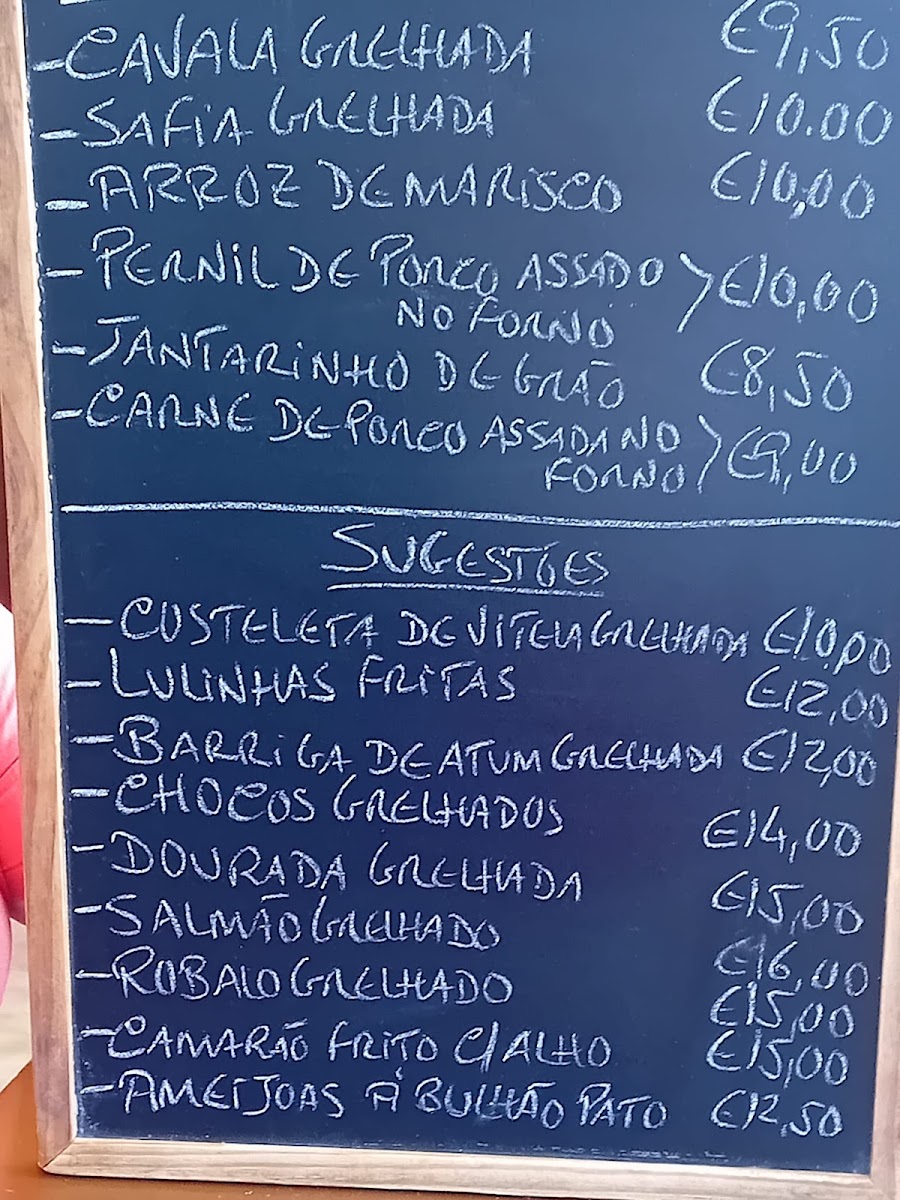 - CAVALA GRELHADA €9,50
- SAFIA GRELHADA €10.00
- ARROZ DE MARISCO €10,00
- PERNIL DE PORCO ASSADO > €10,00
NO FORNO
- JANTARINHO DE GRÃO €8,50
- CARNE DE PORCO ASSADA NO > €9,00
FORNO
SUGESTÕES
- COSTELETA DE VITELA GRELHADA €10,00
- LULINHAS FRITAS €12,00
- BARRIGA DE ATUM GRELHADA €12,00
- CHOCOS GRELHADOS €14,00
- DOURADA GRELHADA €15,00
- SALMÃO GRELHADO €16,00
- ROBALO GRELHADO €15,00
- CAMARÃO FRITO C/ALHO €15,00
- AMEIJOAS À BULHÃO PATO €12,50